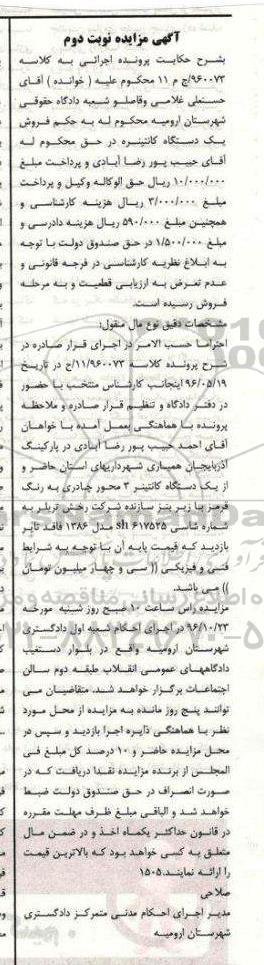 آگهی مزایده نوبت دوم
بشرح حکایت پرونده اجرائی به کلاسه
۹۶۰۰۷۳/ج م ۱۱ محکوم علیه ( خوانده ) آقای
حسنعلی غلامی وقاصلو شعبه دادگاه حقوقی
شهرستان ارومیه محکوم له به حکم فروش
یک دستگاه کانتینره در حق محکوم له
آقای حبیب پور رضا آبادی و پرداخت مبلغ
۱۰/۰۰۰/۰۰۰ ریال حق الوکاله وکیل و پرداخت
مبلغ ۳/۰۰۰/۰۰۰ ریال هزینه کارشناسی و
همچنین مبلغ ۵۹۰/۰۰۰ ریال هزینه دادرسی و
مبلغ ۱/۵۰۰/۰۰۰ در حق صندوق دولت با توجه
به ابلاغ نظریه کارشناسی در فرجه قانونی و
عدم تعرض به ارزیابی قطعیت و بنه مرحله
فروش رسیده است.
مشخصات دقیق نوع مال منقول:
احتراما حسب الامر در اجرای قرار صادره در
شرح پرونده کلاسه ۱۱/۹۶۰۰۷۳/ج در تاریخ
۹۶/۰۵/۱۹ اینجانب کارشناس منتخب با حضور
در دفتر دادگاه و تنظیم قرار صادره و ملاحظه
پرونده با هماهنگی بعمل آمده با خواهان
آقای احمد حبیب پور رضا آبادی در پارکینگ
آذربایجان همیاری شهرداریهای استان حاضر و
از یک دستگاه کانتینر ۳ محور چادری به رنگ
قرمز با زیر بنز سازنده شرکت رخش تریلر به
شماره شاسی sh ۶۱۷۵۲۵ مدل ۱۳۸۶ فاقد تایر
بازدید که قیمت پایه آن با توجه به شرایط
فنی و فیزیکی (( سی و چهار میلیون تومان
)) می باشد.
مزایده راس ساعت ۱۰ صبح روز شنبه مورخه
۹۶/۱۰/۲۳ در اجرای احکام شعبه اول دادگستری
شهرستان ارومیه واقع در بلوار دستغیب
دادگاههای عمومی انقلاب طبقه دوم سالن
اجتماعات برگزار خواهد شد. متقاضیان می
توانند پنج روز مانده به مزایده از محل مورد
نظر با هماهنگی دایره اجرا بازدید و سپس در
محل مزایده حاضر و ۱۰ درصد کل مبلغ فی
المجلس از برنده مزایده نقدا دریافت که در
صورت انصراف در حق صندوق دولت ضبط
خواهد شد و الباقی مبلغ ظرف مهلت مقرره
در قانون حداکثر یکماه اخذ و در ضمن مال
متعلق به کسی خواهد بود که بالاترین قیمت
را ارائه نمایند.۱۵۰۵
صلاحی
مدیر اجرای احکام مدنی متمرکز دادگستری
شهرستان ارومیه